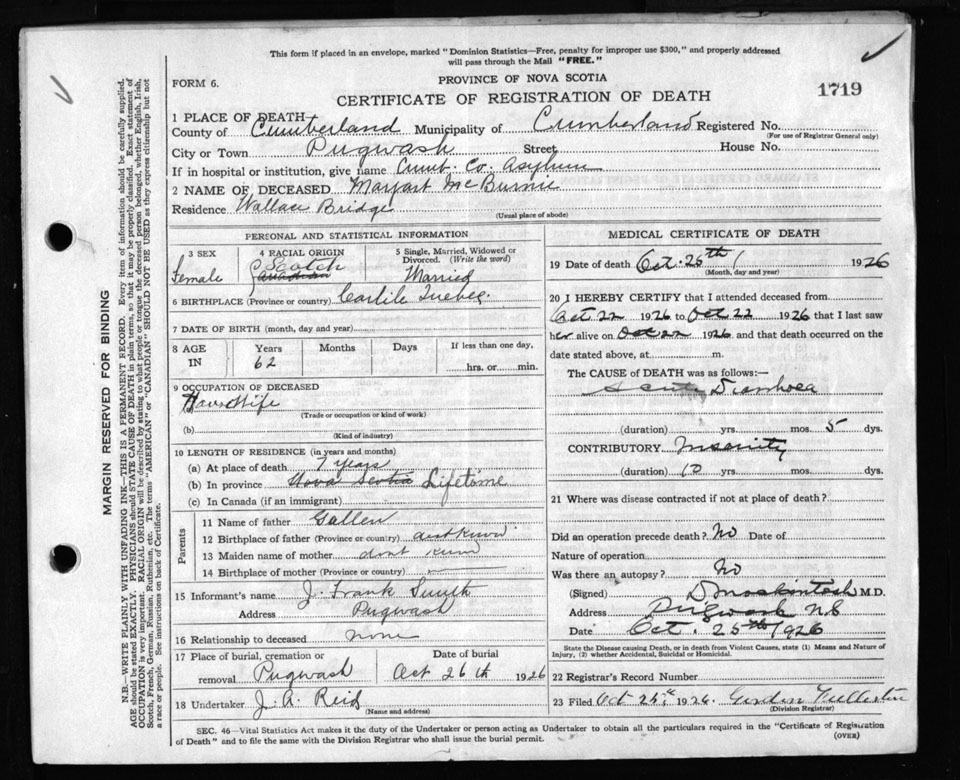 This form if placed in an envelope, marked "Dominion Statistics—Free, penalty for improper use $300," and properly addressed
will pass through the Mail "FREE."
FORM 6.
PROVINCE OF NOVA SCOTIA
1719
CERTIFICATE OF REGISTRATION OF DEATH
1 PLACE OF DEATH
County of Cumberland Municipality of Cumberland Registered No.
(For use of Registrar General only)
City or Town Pugwash Street House No.
If in hospital or institution, give name Cumb. Co. Asylum
2 NAME OF DECEASED Margart McBurnie
Residence Wallace Bridge
(Usual place of abode)
PERSONAL AND STATISTICAL INFORMATION
3 SEX 4 RACIAL ORIGIN 5 Single, Married, Widowed or
Divorced. (Write the word)
Female Scotch Canadian Married
6 BIRTHPLACE (Province or country) Carlile Quebec.
7 DATE OF BIRTH (month, day and year)
8 AGE IN Years Months Days If less than one day,
62 hrs. or min.
9 OCCUPATION OF DECEASED
Housewife
(Trade or occupation or kind of work)
(b)
(Kind of industry)
10 LENGTH OF RESIDENCE (in years and months)
(a) At place of death 7 years
(b) In province Nova Scotia Lifetime
(c) In Canada (if an immigrant)
Parents
11 Name of father Gallen
12 Birthplace of father (Province or country) dont know
13 Maiden name of mother dont know
14 Birthplace of mother (Province or country)
15 Informant's name J. Frank Smith
Address Pugwash
16 Relationship to deceased none
17 Place of burial, cremation or Date of burial
removal Pugwash Oct 26th 1926
18 Undertaker J. A. Reid
(Name and address)
MEDICAL CERTIFICATE OF DEATH
19 Date of death Oct. 25th 1926
(Month, day and year)
20 I HEREBY CERTIFY that I attended deceased from
Oct 22 1926 to Oct 22 1926 that I last saw
her alive on Oct 22 1926 and that death occurred on the
date stated above, at m.
The CAUSE OF DEATH was as follows:—
Acute Diarrhoea
(duration) yrs. mos. 5 dys.
CONTRIBUTORY Insanity
(duration) 10 yrs. mos. dys.
21 Where was disease contracted if not at place of death?
Did an operation precede death? No Date of
Nature of operation
Was there an autopsy? No
(Signed) M.D.
Address Pugwash N.S
Date Oct. 25th 1926
State the Disease causing Death, or in death from Violent Causes, state (1) Means and Nature of
Injury, (2) whether Accidental, Suicidal or Homicidal.
22 Registrar's Number
23 Filed Oct 1926. Gordon Fullerton
(Division Registrar)
SEC. 46—Vital Statistics Act makes it the duty of the Undertaker or person acting as Undertaker to obtain all the particulars required in the "Certificate of Registration
of Death" and to file the same with the Division Registrar who shall issue the burial permit.
(OVER)
MARGIN RESERVED FOR BINDING
N.B.—WRITE PLAINLY WITH UNFADING INK—THIS IS A PERMANENT RECORD. Every item of information should be carefully supplied.
AGE should be stated EXACTLY. PHYSICIANS should STATE CAUSE OF DEATH in plain terms, so that it may be properly classified. Exact statement of
OCCUPATION is very important. RACIAL ORIGIN will be described by stating to what people or tongue the deceased person belonged, whether English, Irish,
Scotch, French, German, Russian, Ruthenian, etc. The terms "AMERICAN" or "CANADIAN" SHOULD NOT BE USED as they express citizenship but not
a race or people. See instructions on back of Certificate.